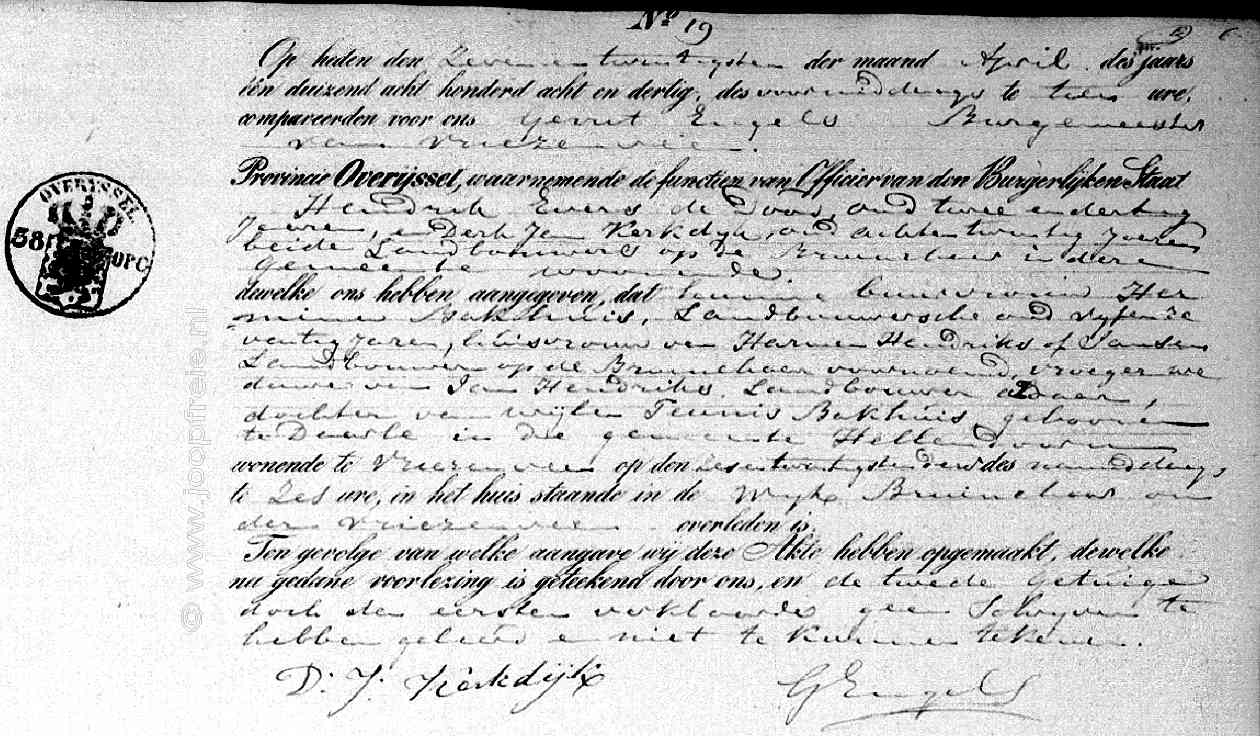 Nº 19
Op heden den zevenentwintigsten der maand April des jaars
een duizend acht honderd acht en dertig, des voormiddags te tien ure,
compareerden voor ons Gerrit Engels Burgemeester
van Vriezenveen.
Provincie Overijssel, waarnemende de functien van Officier van den Burgerlijken Staat
Hendrik Evers de Joode, oud twee en dertig
Jaaren, en Derk Jan Kerkdyk, oud achtentwintig Jaaren
beide Landbouwers op de Bruinehaar in deze
gemeente woonende
dewelke ons hebben aangegeven, dat hunne buurvrouw Her
mina Bakhuis, Landbouwersche oud vyfenze
ventig jaren, huisvrouw van Harmen Hendriks of Jansen
Landbouwer op de Bruinehaar voornoemd, vroeger we
duwe van Jan Hendriks Landbouwer aldaar,
dochter van wylen Teunis Bakhuis, gebooren
te Daarle in de gemeente Hellendoorn
wonende te Vriezenveen op den zesentwintigsten dezer des namiddags,
te zes ure, in het huis staande in de wyk Bruinehaar on
der Vriezenveen overleden is.
Ten gevolge van welke aangave wij deze Akte hebben opgemaakt, dewelke
na gedane voorlezing is geteekend door ons, en de tweede getuige
doch den eersten verklaarde geen Schryven te
hebben geleerd en niet te kunnen tekenen.
D. J. Kerkdijk GEngels
OVERYSSEL
38 OPC
© www.joopfreie.nl